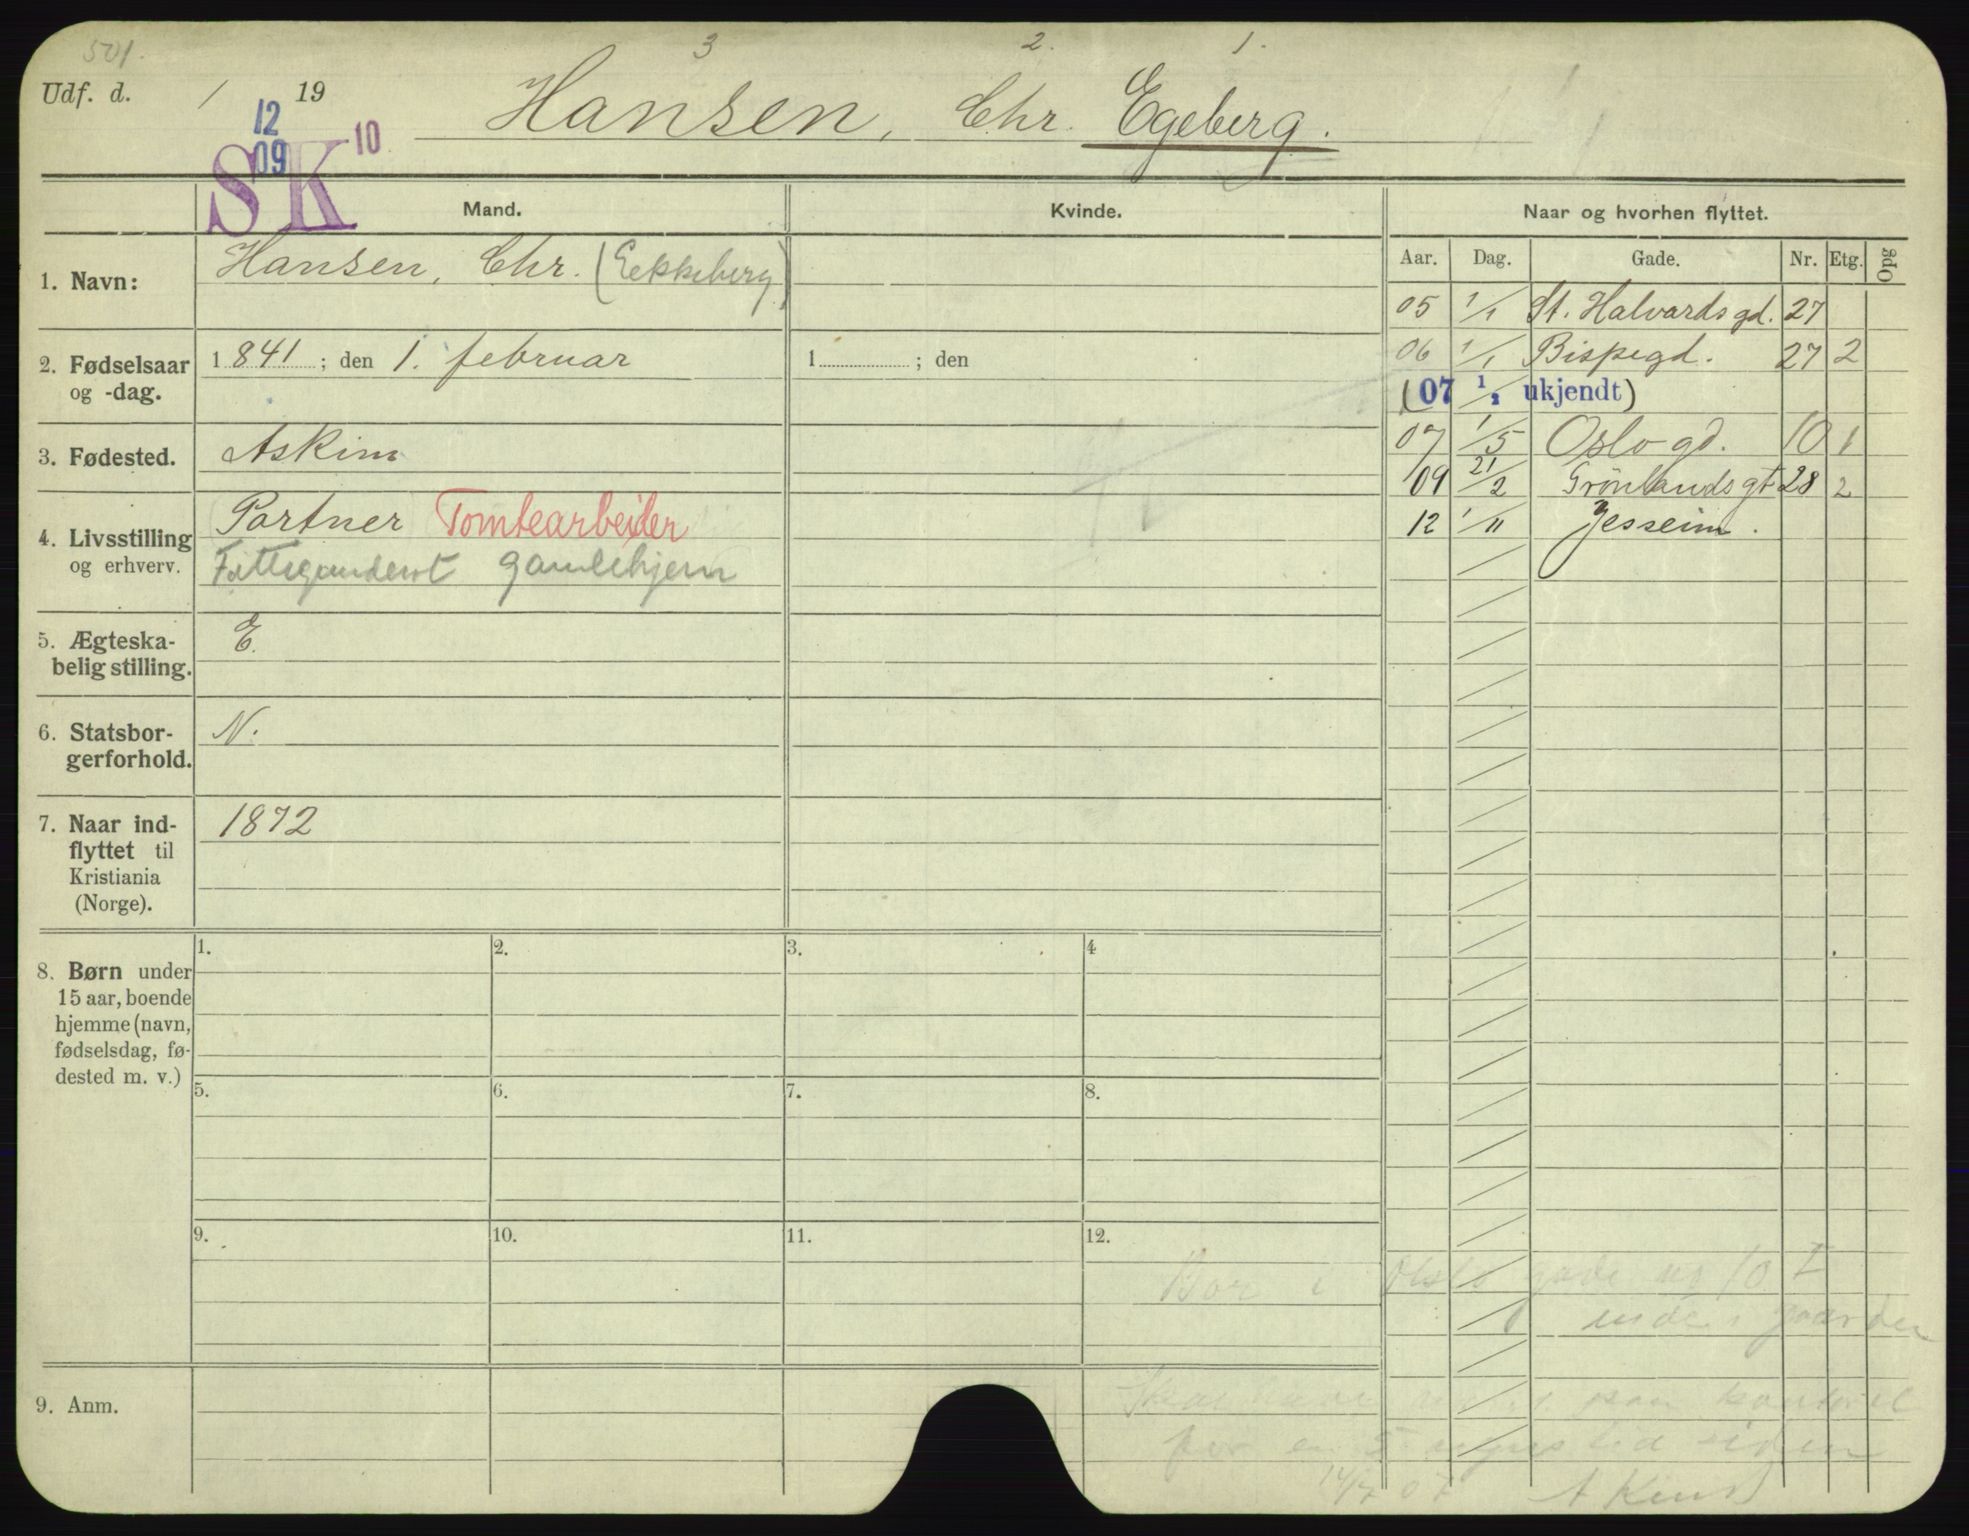 501.
3 2. 1.
Udf. d. / 19
Hansen, Chr. Egeberg.
12 10
09
SK
Mand. Kvinde. Naar og hvorhen flyttet.
Aar. Dag. Gade. Nr. Etg. Opg
1. Navn: Hansen, Chr. (Eekkeberg)
05 1/1 St. Halvardsgd. 27
2. Fødselsaar 1841; den 1. februar 1 ; den
og -dag.
06 1/1 Bispegd. 27 2
(07 1/1 ukjendt)
3. Fødested. Askim
07 1/5 Oslogd. 10 1
09 21/2 Grönlandsgt 28 2
4. Livsstilling Portner Tomtearbeider
og erhverv. gamlehjem
12 1/11 Jesseim.
5. Ægteska-
belig stilling. E.
6. Statsbor-
gerforhold. N.
7. Naar ind-
flyttet til
Kristiania
(Norge). 1872
8. Børn under
15 aar, boende
hjemme (navn,
fødselsdag, fø-
dested m. v.)
1. 2. 3. 4
5. 6. 7. 8.
9. 10. 11. 12.
Bor i Oslo gade no 10 I
inde i gaarden
9. Anm.
for en 5 ugers tid siden
14/7 07